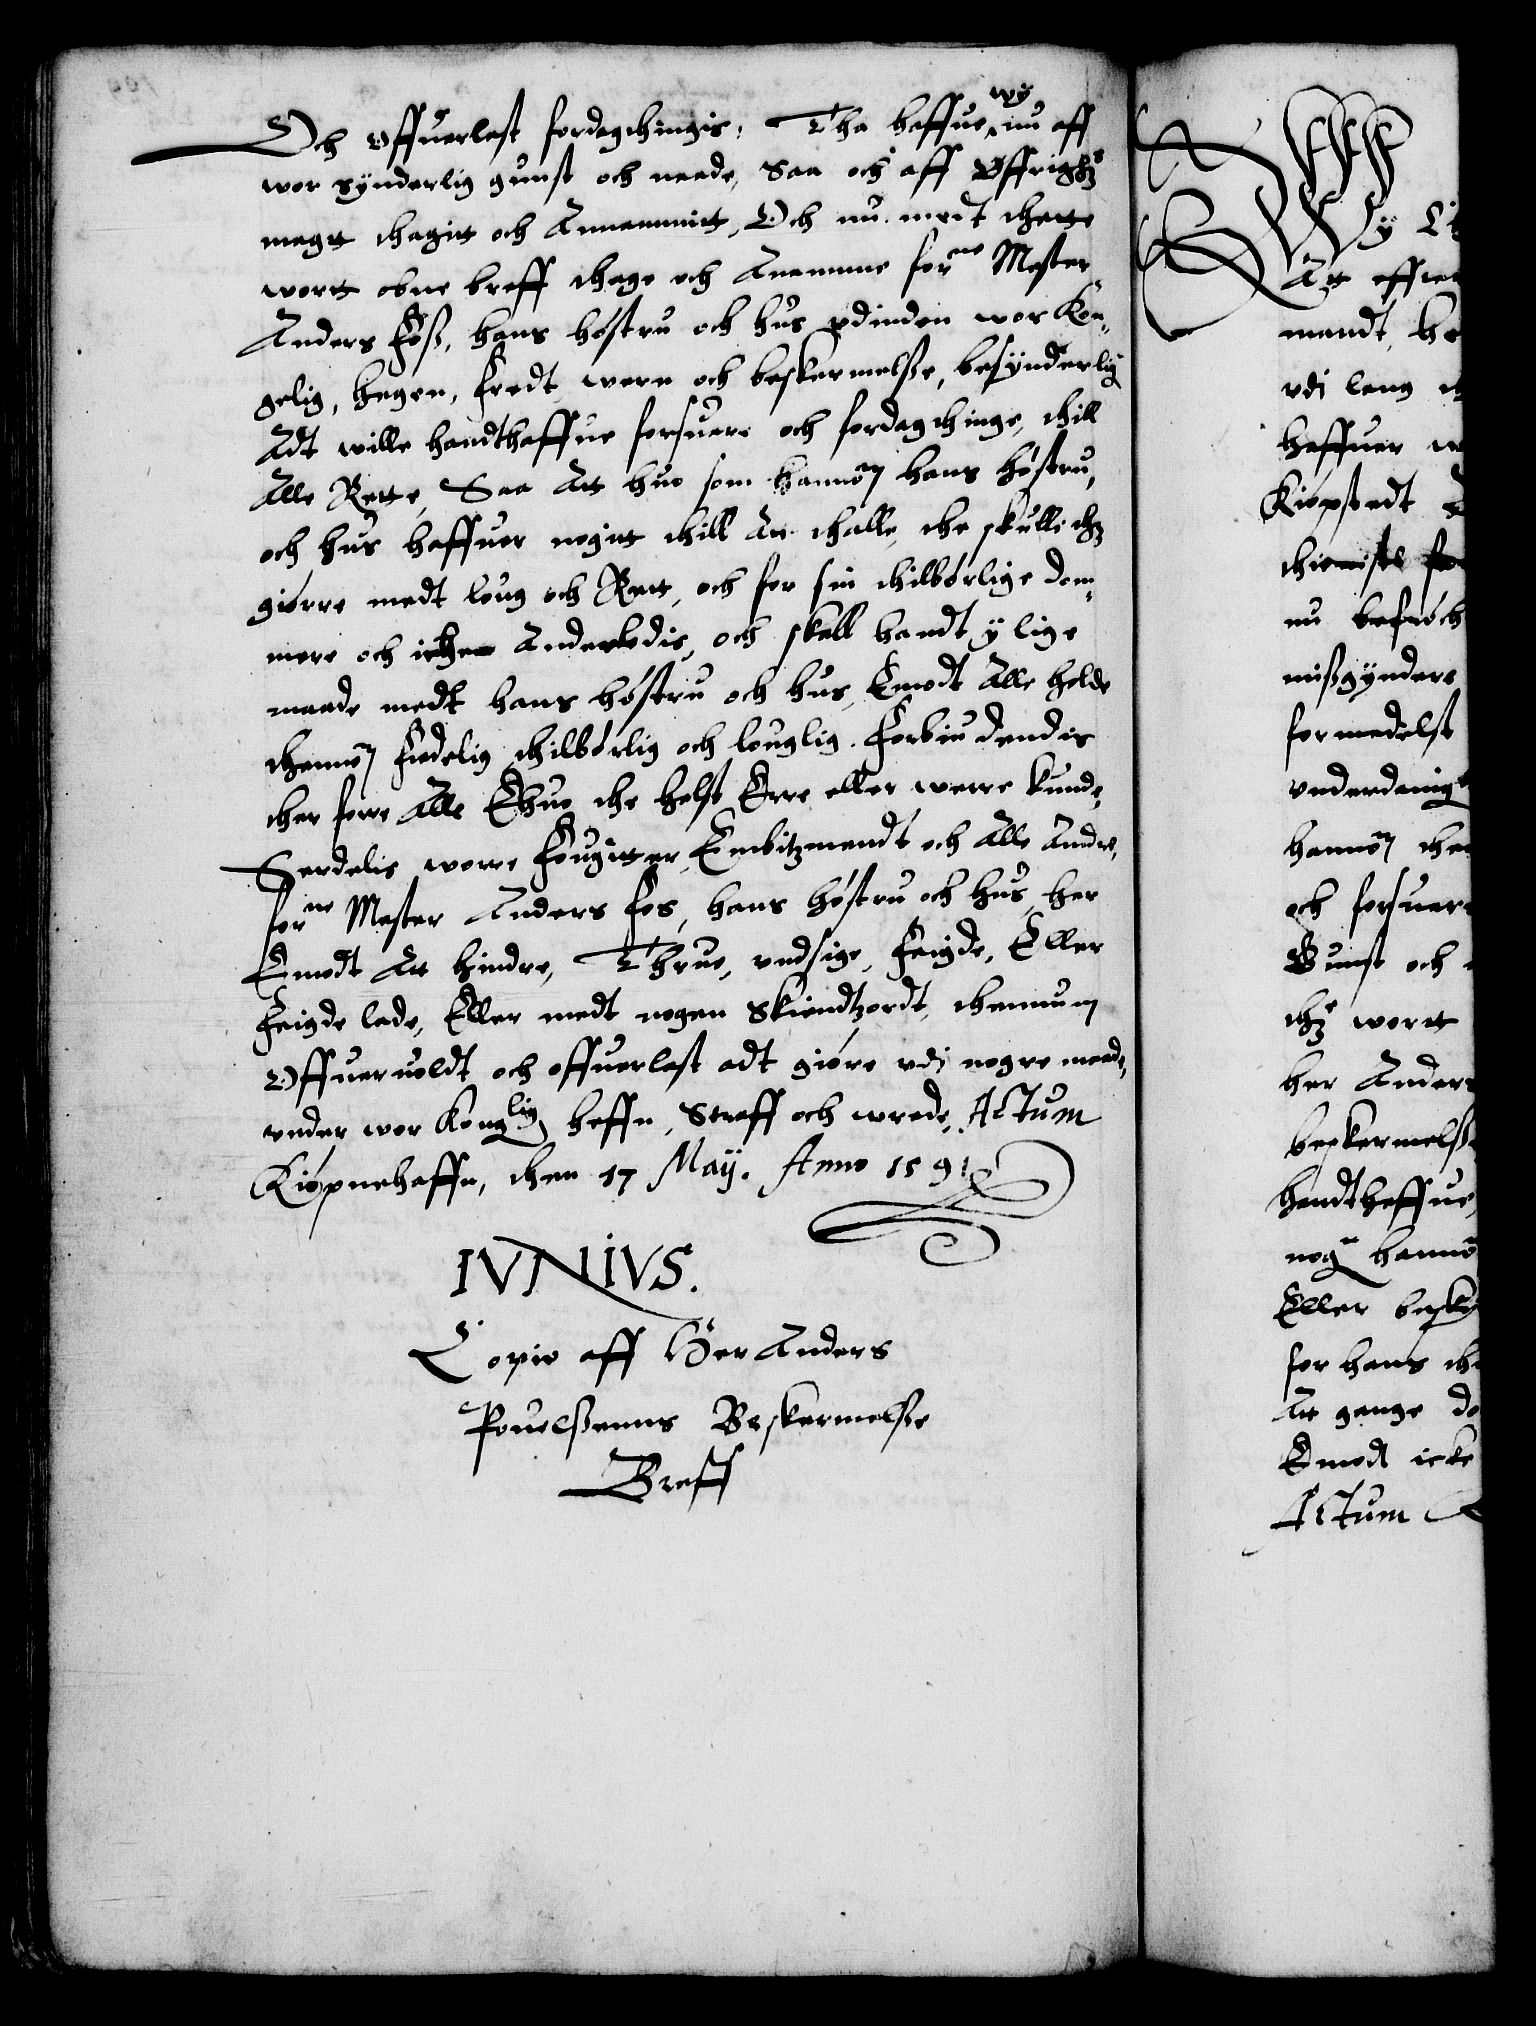 Och offuerlast fordagthingis, Tha haffue wy nu aff
wor synderlig gunst och naade, Saa och aff Øffrighz
magtt thagitt och Annammitt, Och nu medt thette
wortt obne breff thage och Anamme for ne Mester
Anders Foss, hans høstru och hus vdinden wor Kon„
gelig, hegen, fredt, wern och beskermelsse, besynderlig
Adt wille handthaffue forsuare och fordagthinge, thill
Alle Rette, Saa Att huo som hannom hans høstru,
och hus haffuer nogitt thill At thalle, the skulle thz
giørre medt loug och Rett, och for sin thilbørlige dom„
mere och icke Anderledis, och skall handt ÿ lige
maade medt hans høstru och hus, Emodt Alle holde
thennom fredelig thilbørlig och louglig. Forbiudendis
ther forre Alle Ehuo the helst Erre eller werre kunde,
Serdelis worre Fougitter, Embitzmendt och Alle Andre,
for ne Mester Anders Fos, hans høstru och hus, her
Emodt Att hindre, Thrue, vndsige, Feigde, Eller
Feigde lade, Eller medt nogen Skiendtzordt, thennum
Offueruoldt och offuerlast adt giøre vdi nogre maade,
vnder wor Konglig heffn, Straff och wrede, Actum
Kiøpnehaffn, then 17 Maÿ. Anno 1591
IVNIVS.
Copie aff Her Anders
Pouelssenns Beskermelsse
Breff
Wy
Att
mandt,
vdi lang
haffuer
Kiøpstedt
nu
missgynders
formedelst
vnderdanig
hannom
och forsuare
Gunst och
thz wortt
her Anders
beskermelsse
handthaffue,
nogn hannom
Eller
for hans
Att gange
Emodt icke
Actum